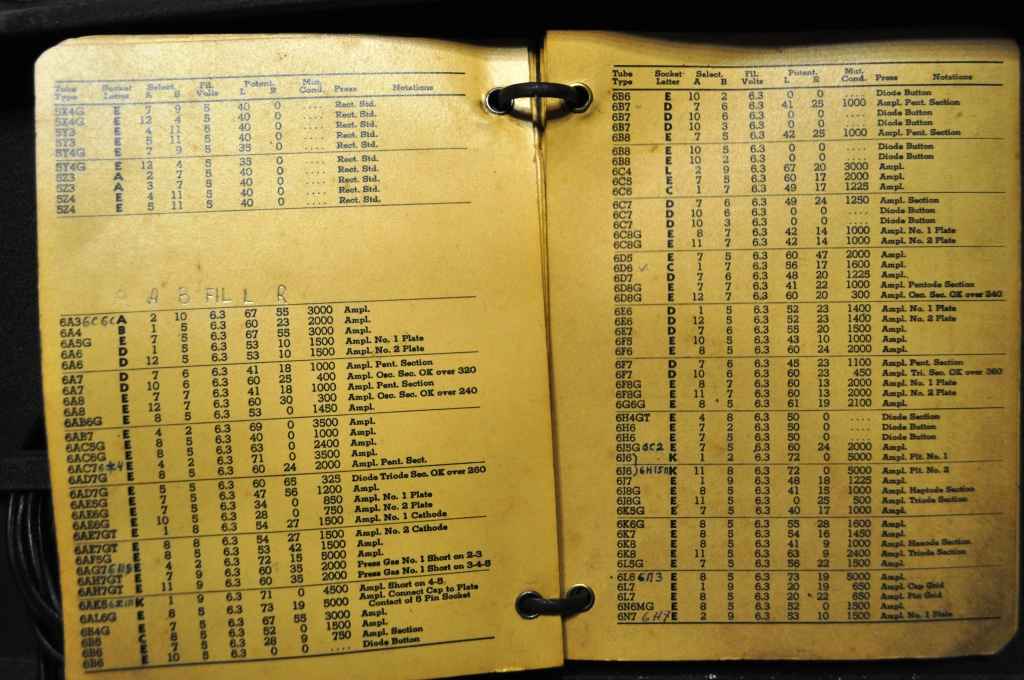 Tube Type Socket Letter Select. A B Fil. Volts Potent. L R Mut. Cond. Press Notations
5X4G E 7 9 5 40 0 .... Rect. Std.
5X4G E 12 4 5 40 0 .... Rect. Std.
5Y3 E 4 11 5 40 0 .... Rect. Std.
5Y3 E 5 11 5 40 0 .... Rect. Std.
5Y4G E 7 9 5 35 0 .... Rect. Std.
5Y4G E 12 4 5 35 0 .... Rect. Std.
5Z3 A 2 7 5 40 0 .... Rect. Std.
5Z3 A 3 7 5 40 0 .... Rect. Std.
5Z4 E 4 11 5 40 0 .... Rect. Std.
5Z4 E 5 11 5 40 0 .... Rect. Std.
A B FIL L R
6A3 6C6C A 2 10 6.3 67 55 3000 Ampl.
6A4 B 1 5 6.3 60 23 2000 Ampl.
6A5G E 7 5 6.3 67 55 3000 Ampl.
6A6 D 1 5 6.3 53 10 1500 Ampl. No. 1 Plate
6A6 D 12 5 6.3 53 10 1500 Ampl. No. 2 Plate
6A7 D 7 6 6.3 41 18 1000 Ampl. Pent. Section
6A7 D 10 6 6.3 60 25 400 Ampl. Osc. Sec. OK over 320
6A8 E 7 7 6.3 41 18 1000 Ampl. Pent. Section
6A8 E 12 7 6.3 60 30 300 Ampl. Osc. Sec. OK over 240
6AB6G E 8 5 6.3 53 0 1450 Ampl.
6AB7 E 4 2 6.3 69 0 3500 Ampl.
6AC5G E 8 5 6.3 40 0 1000 Ampl.
6AC6G E 8 5 6.3 63 0 2400 Ampl.
6AC7 E 4 2 6.3 71 0 3500 Ampl.
6AD7G E 8 5 6.3 60 24 2000 Ampl. Pent. Sect.
6AD7G E 5 5 6.3 60 65 325 Diode Triode Sec. OK over 260
6AE5G E 7 5 6.3 47 56 1200 Ampl.
6AE6G E 7 5 6.3 34 0 850 Ampl. No. 1 Plate
6AE6G E 10 5 6.3 28 0 750 Ampl. No. 2 Plate
6AE7GT E 1 8 6.3 54 27 1500 Ampl. No. 1 Cathode
6AE7GT E 8 8 6.3 54 27 1500 Ampl. No. 2 Cathode
6AF5G E 8 5 6.3 53 42 1500 Ampl.
6AG7 E 4 2 6.3 72 15 5000 Ampl.
6AH7GT E 7 9 6.3 60 35 2000 Press Gas No. 1 Short on 2-3
6AH7GT E 11 9 6.3 60 35 2000 Press Gas No. 1 Short on 3-4-8
6AK5 K 1 9 6.3 71 0 4500 Ampl. Short on 4-8.
6AL6G E 8 5 6.3 73 19 5000 Ampl. Connect Cap to Plate
Contact of 5 Pin Socket
6B4G E 7 5 6.3 67 55 3000 Ampl.
6B5 C 8 5 6.3 52 0 1500 Ampl.
6B6 E 8 5 6.3 28 9 750 Ampl. Section
6B6 E 10 5 6.3 0 0 .... Diode Button
Tube Type Socket Letter Select. A B Fil. Volts Potent. L R Mut. Cond. Press Notations
6B6 E 10 2 6.3 0 0 .... Diode Button
6B7 D 7 6 6.3 41 25 1000 Ampl. Pent. Section
6B7 D 10 6 6.3 0 0 .... Diode Button
6B7 D 10 3 6.3 0 0 .... Diode Button
6B8 E 7 5 6.3 42 25 1000 Ampl. Pent. Section
6B8 E 10 5 6.3 0 0 .... Diode Button
6B8 E 10 2 6.3 0 0 .... Diode Button
6C4 L 2 9 6.3 67 20 3000 Ampl.
6C5 E 7 5 6.3 60 17 2000 Ampl.
6C6 C 1 7 6.3 49 17 1225 Ampl.
6C7 D 7 6 6.3 49 24 1250 Ampl. Section
6C7 D 10 6 6.3 0 0 .... Diode Button
6C7 D 10 3 6.3 0 0 .... Diode Button
6C8G E 8 7 6.3 42 14 1000 Ampl. No. 1 Plate
6C8G E 11 7 6.3 42 14 1000 Ampl. No. 2 Plate
6D5 E 7 5 6.3 60 47 2000 Ampl.
6D6 ✓ C 1 7 6.3 56 17 1600 Ampl.
6D7 D 7 6 6.3 48 20 1225 Ampl.
6D8G E 7 7 6.3 41 22 1000 Ampl. Pentode Section
6D8G E 12 7 6.3 60 20 300 Ampl. Osc. Sec. OK over 240
6E6 D 1 5 6.3 52 23 1400 Ampl. No. 1 Plate
6E6 D 12 5 6.3 52 23 1400 Ampl. No. 2 Plate
6E7 D 7 6 6.3 55 20 1500 Ampl.
6F5 E 10 5 6.3 43 10 1000 Ampl.
6F6 E 8 5 6.3 60 24 2000 Ampl.
6F7 D 7 6 6.3 45 23 1100 Ampl. Pent. Section
6F7 D 10 6 6.3 60 23 450 Ampl. Tri. Sec. OK over 360
6F8G E 8 7 6.3 60 13 2000 Ampl. No. 1 Plate
6F8G E 11 7 6.3 60 13 2000 Ampl. No. 2 Plate
6G6G E 8 5 6.3 61 19 2100 Ampl.
6H4GT E 4 8 6.3 50 0 .... Diode Section
6H6 E 7 2 6.3 50 0 .... Diode Button
6H6 E 7 5 6.3 50 0 .... Diode Button
6J5G 6C2 E 7 5 6.3 60 24 2000 Ampl.
6J6 K 1 2 6.3 72 0 5000 Ampl. Plt. No. 1
6J6 6H15 K 11 8 6.3 72 0 5000 Ampl. Plt. No. 2
6J7 E 1 9 6.3 48 18 1225 Ampl.
6J8G E 8 5 6.3 41 15 1000 Ampl. Heptode Section
6J8G E 11 5 6.3 0 25 500 Ampl. Triode Section
6K5G E 7 5 6.3 40 17 1000 Ampl.
6K6G E 8 5 6.3 55 28 1600 Ampl.
6K7 E 7 5 6.3 54 16 1450 Ampl.
6K8 E 8 5 6.3 41 9 1000 Ampl. Hexode Section
6K8 E 11 5 6.3 63 9 2400 Ampl. Triode Section
6L5G E 7 5 6.3 56 22 1500 Ampl.
6L6 6П3 E 8 5 6.3 73 19 5000 Ampl.
6L7 E 1 9 6.3 20 19 650 Ampl. Cap Grid
6L7 E 8 5 6.3 20 22 650 Ampl. Pin Grid
6N6MG E 8 5 6.3 52 0 1500 Ampl.
6N7 6H7 E 2 9 6.3 53 10 1500 Ampl. No. 1 Plate